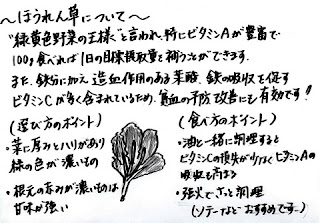 〜ほうれん草について〜
"緑黄色野菜の王様"と言われ、特にビタミンAが豊富で
100g食べれば1日の目標摂取量を補うことができます。
また、鉄分に加え造血作用のある葉酸、鉄の吸収を促す
ビタミンCが多く含まれているため、貧血の予防改善にも有効です!
(選び方のポイント)
・葉に厚みとハリがあり
緑の色が濃いもの
・根元の赤みが濃いものは
甘味が強い
(食べ方のポイント)
・油と一緒に調理すると
ビタミンCの損失が少なくビタミンAの
吸収も高まる
・強火でさっと調理
(ソテーなどおすすめです。)